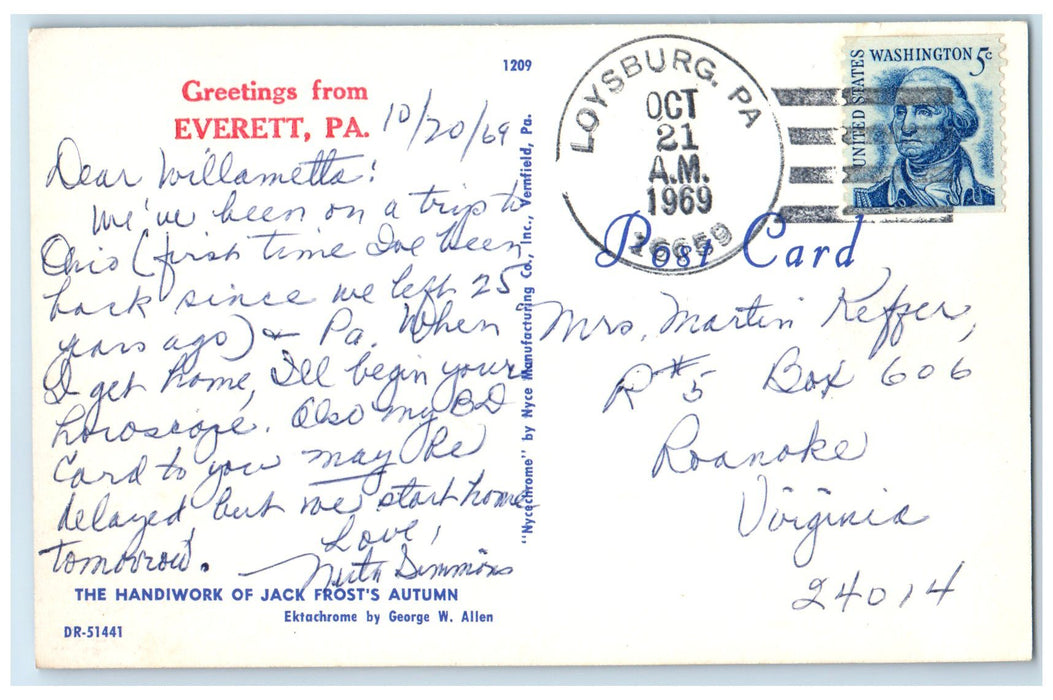 Greetings from
EVERETT, PA.
10/20/69
Dear Willametta:
We've been on a trip to
Ohio (first time I've been
back since we left 25
years ago) & Pa. When
I get home, I'll begin your
horoscope. Also my BD
Card to you may be
delayed, but we start home
tomorrow.
Love,
Simmons
THE HANDIWORK OF JACK FROST'S AUTUMN
Ektachrome by George W. Allen
DR-51441
1209
"Nycechrome" by Nyce Manufacturing Co., Inc., Vernfield, Pa.
LOYSBURG, PA
OCT
21
A.M.
1969
16659
UNITED STATES
WASHINGTON 5c
Post Card
Mrs. Martin Keffer,
R #5 Box 606
Roanoke
Virginia
24014